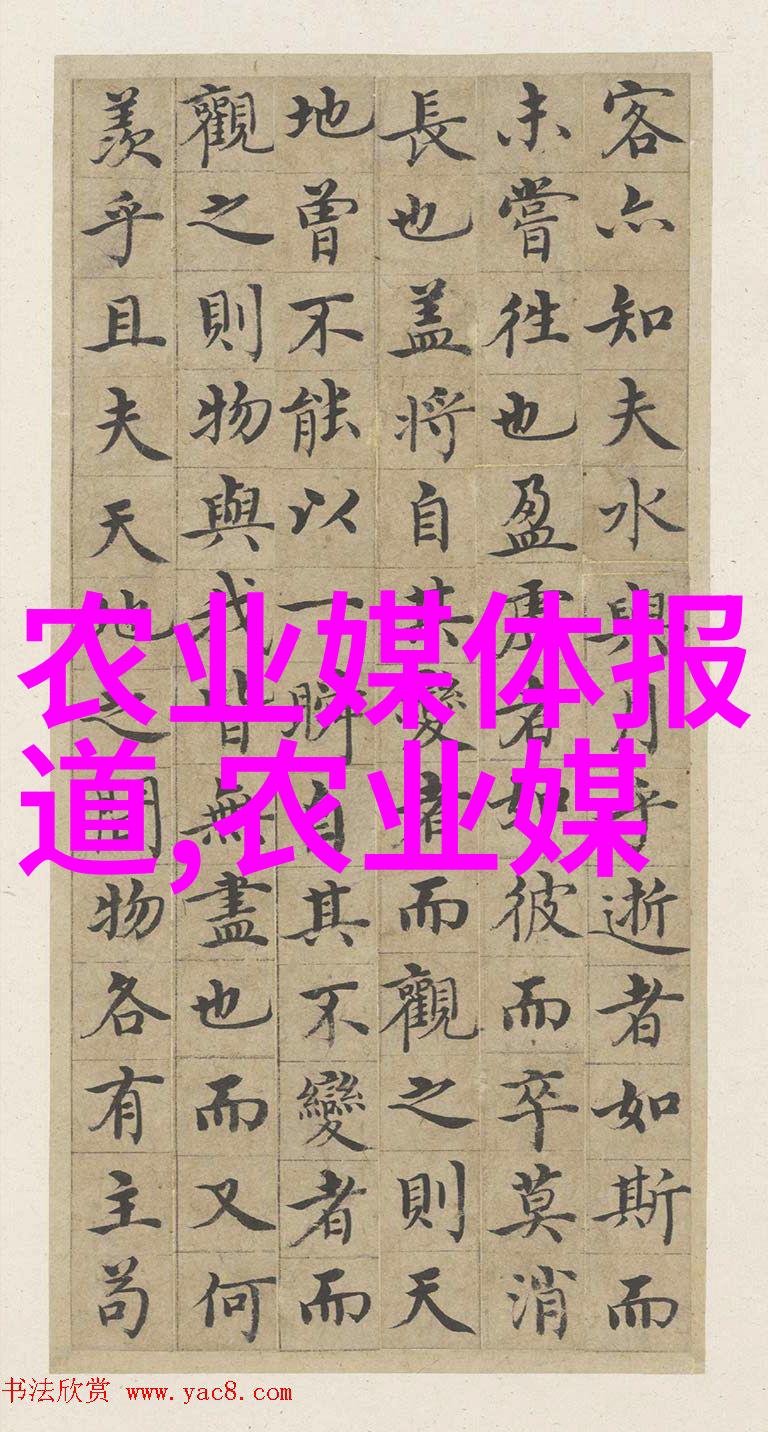 客亦知夫水與月乎逝者如斯而
未嘗往也盈虛者如彼而卒莫消
長也盖將自其變者而觀之則天
地曾不能以一瞬自其不變者而
觀之則物與我皆無盡也而又何
羨乎且夫天地之間物各有主苟
农业媒体报
道,农业媒
书法欣赏 www.yac8.com